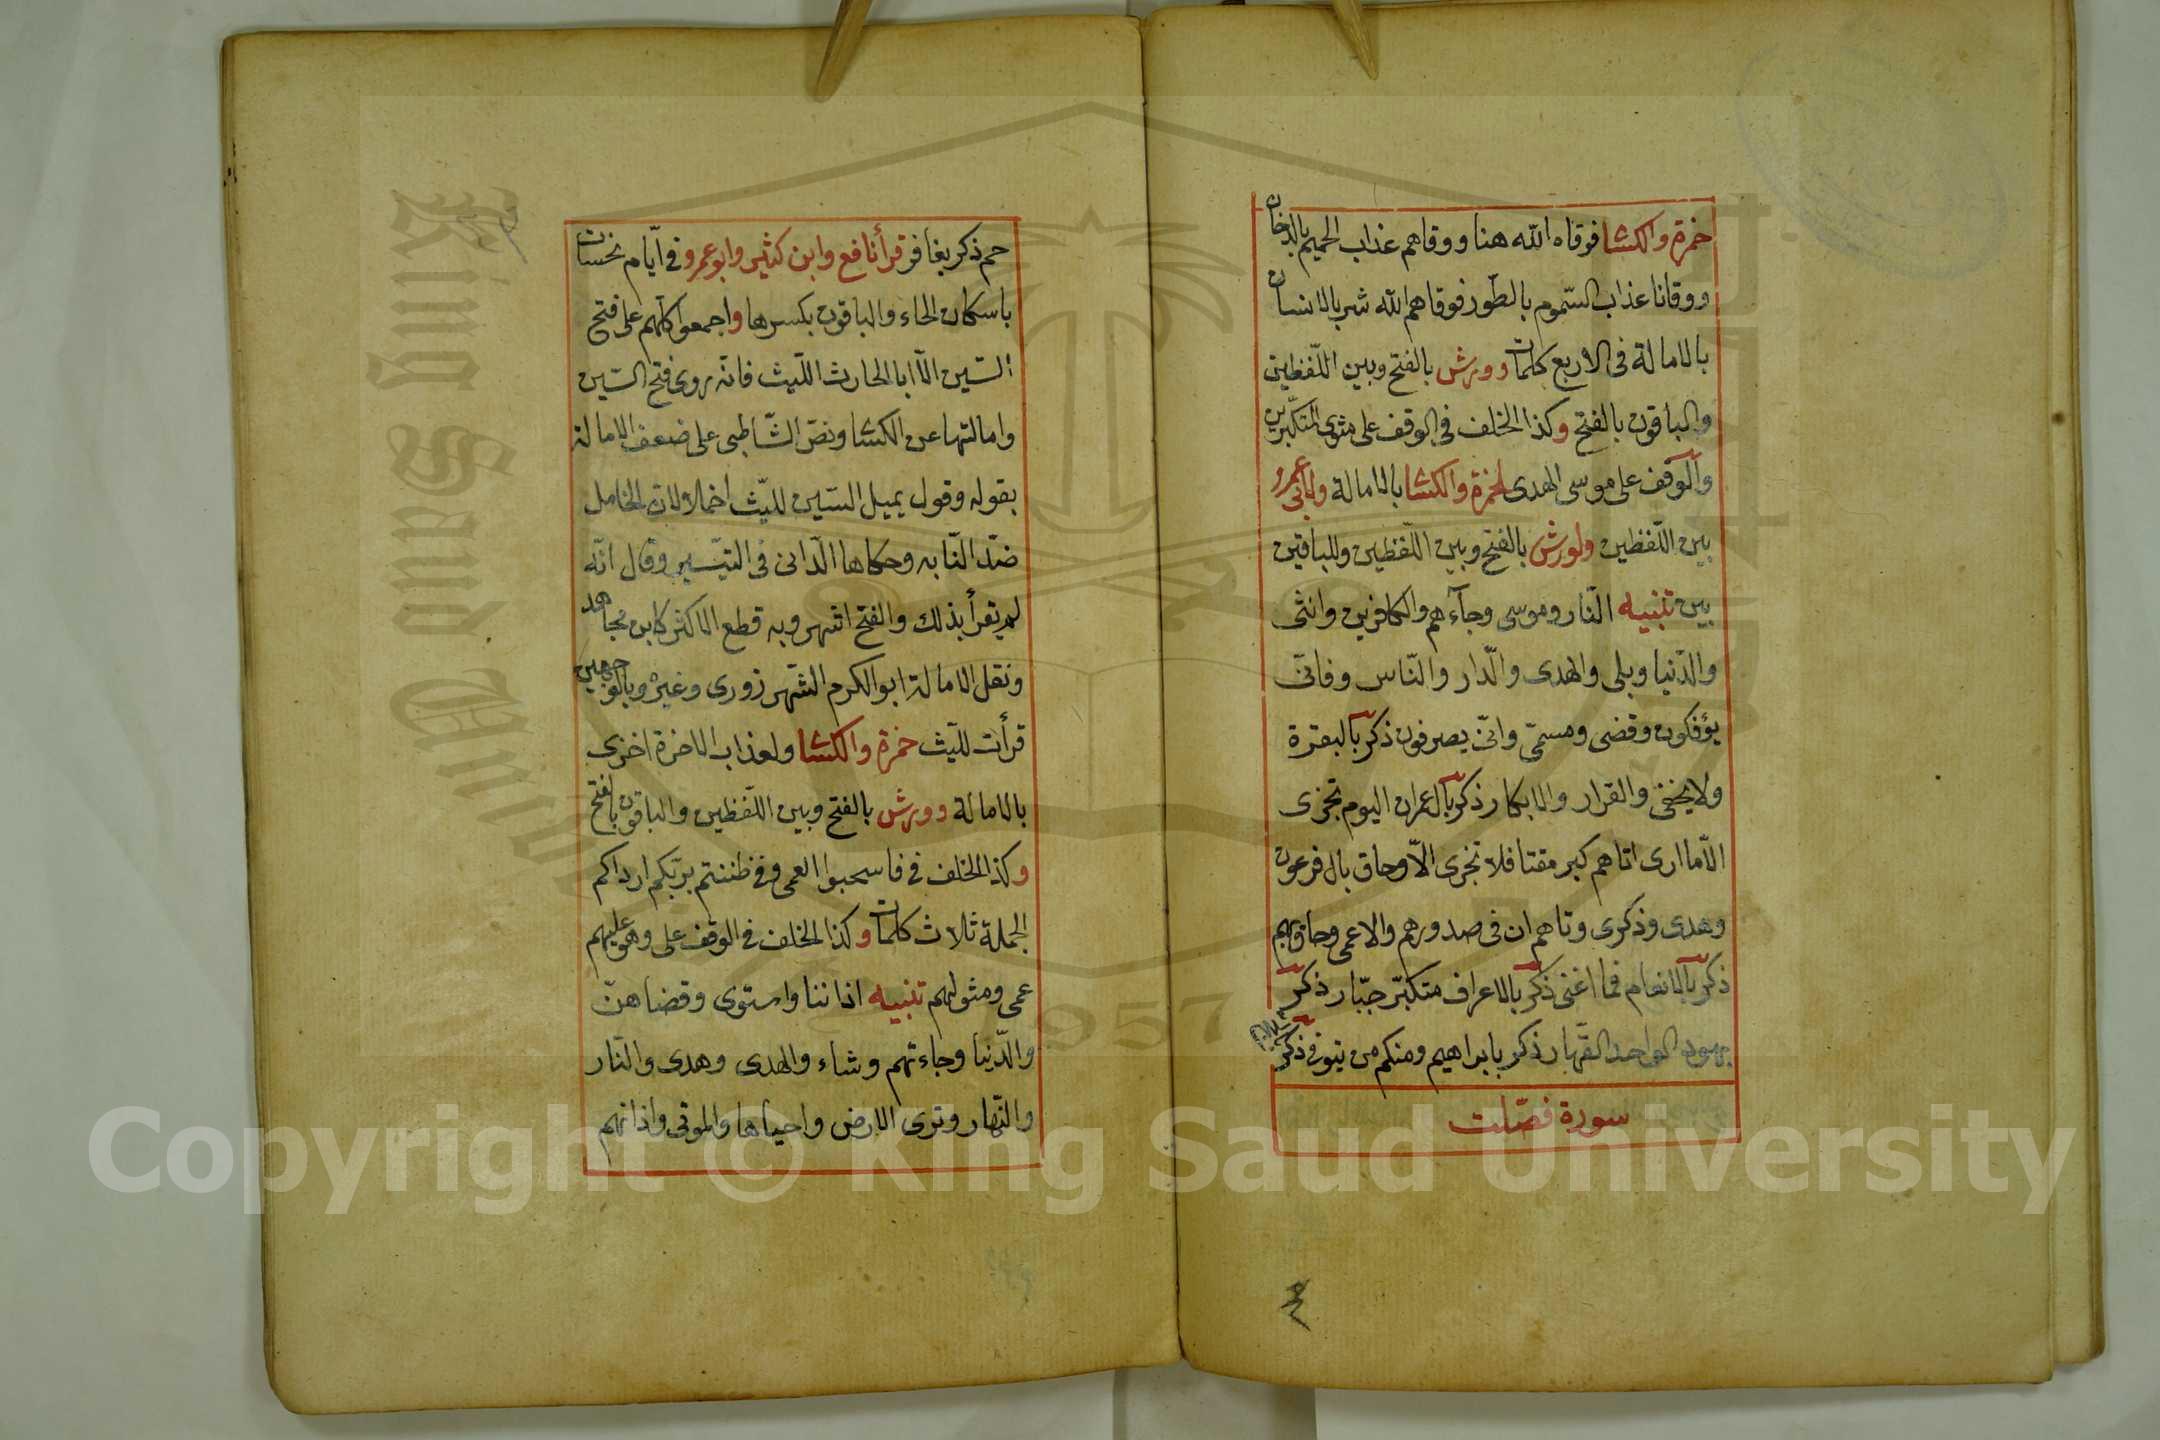 حمزة والكسا فوقاه الله هنا ووقاهم عذاب الجحيم بالدخان
ووقانا عذاب السّموم بالطّور فوقاهم الله شر بالانسان
بالامالة فى الاربع كلمات وورش بالفتح وبين اللّفظين
والباقون بالفتح وكذا الخلف فى الوقف على مثوى المتكبّرين
والوقف على موسى الهدى لحمزة والكسا بالامالة ولابى عمرو
بين اللّفظين ولورش بالفتح وبين اللّفظين وللباقين
بين تنبيه النّار وموسى وجآءهم والكافرين وانثى
والدّنيا وبلى والهدى والدّار والنّاس وفانىّ
يؤفكون وقضى ومسمّى وانىّ يصرفون ذكر بالبقرة
ولا يخفى والقرار والابكار ذكر بآل عمران اليوم تجزى
الّا ما ارى اتاهم كبر مقتا فلا تجزى الّا وحاق بال فرعون
وهدى وذكرى وتاهم ان فى صدورهم والاعمى وحاق بهم
ذكر بالانعام فما اغنى ذكر بالاعراف متكبّر جبّار ذكر
بهود الواحد القهّار ذكر بابراهيم ومنكم من يتوفى ذكر
سورة فصّلت
حم ذكر بغافر قرأ نافع وابن كثير وابو عمرو فى ايّام نحسات
باسكان الحاء والباقون بكسرها واجمعوا كلّهم على فتح
السّين الّا ابا الحارث اللّيث فانّه روى فتح السّين
وامالتها عن الكسا ونصّ الشّاطبى على ضعف الامالة
بقوله وقول يميل السّين للّيث اخملا لان الخامل
ضدّ النّابه وحكاها الدّانى فى التيّسير وقال انّه
لم يقرأ بذلك والفتح اشهر وبه قطع الاكثر كابن مجاهد
ونقل الامالة ابو الكرم الشّهرزورى وغيره وبالوجهين
قرأت للّيث حمزة والكسا ولعذاب الاخرة اخزى
بالامالة وورش بالفتح وبين اللّفظين والباقون بالفتح
وكذا الخلف فى فاستحبوا العمى وفى ظننتم بربّكم ارداكم
الجملة ثلاث كلمات وكذا الخلف فى الوقف على وهو عليهم
عمى ومثوى لهم تنبيه اذاننا واستوى وقضاهنّ
والدّنيا وجاءتهم وشاء والهدى وهدى والنّار
والنّهار وترى الارض واحياها والموتى واذانهم
Copyright © King Saud University
King Saud University
1957